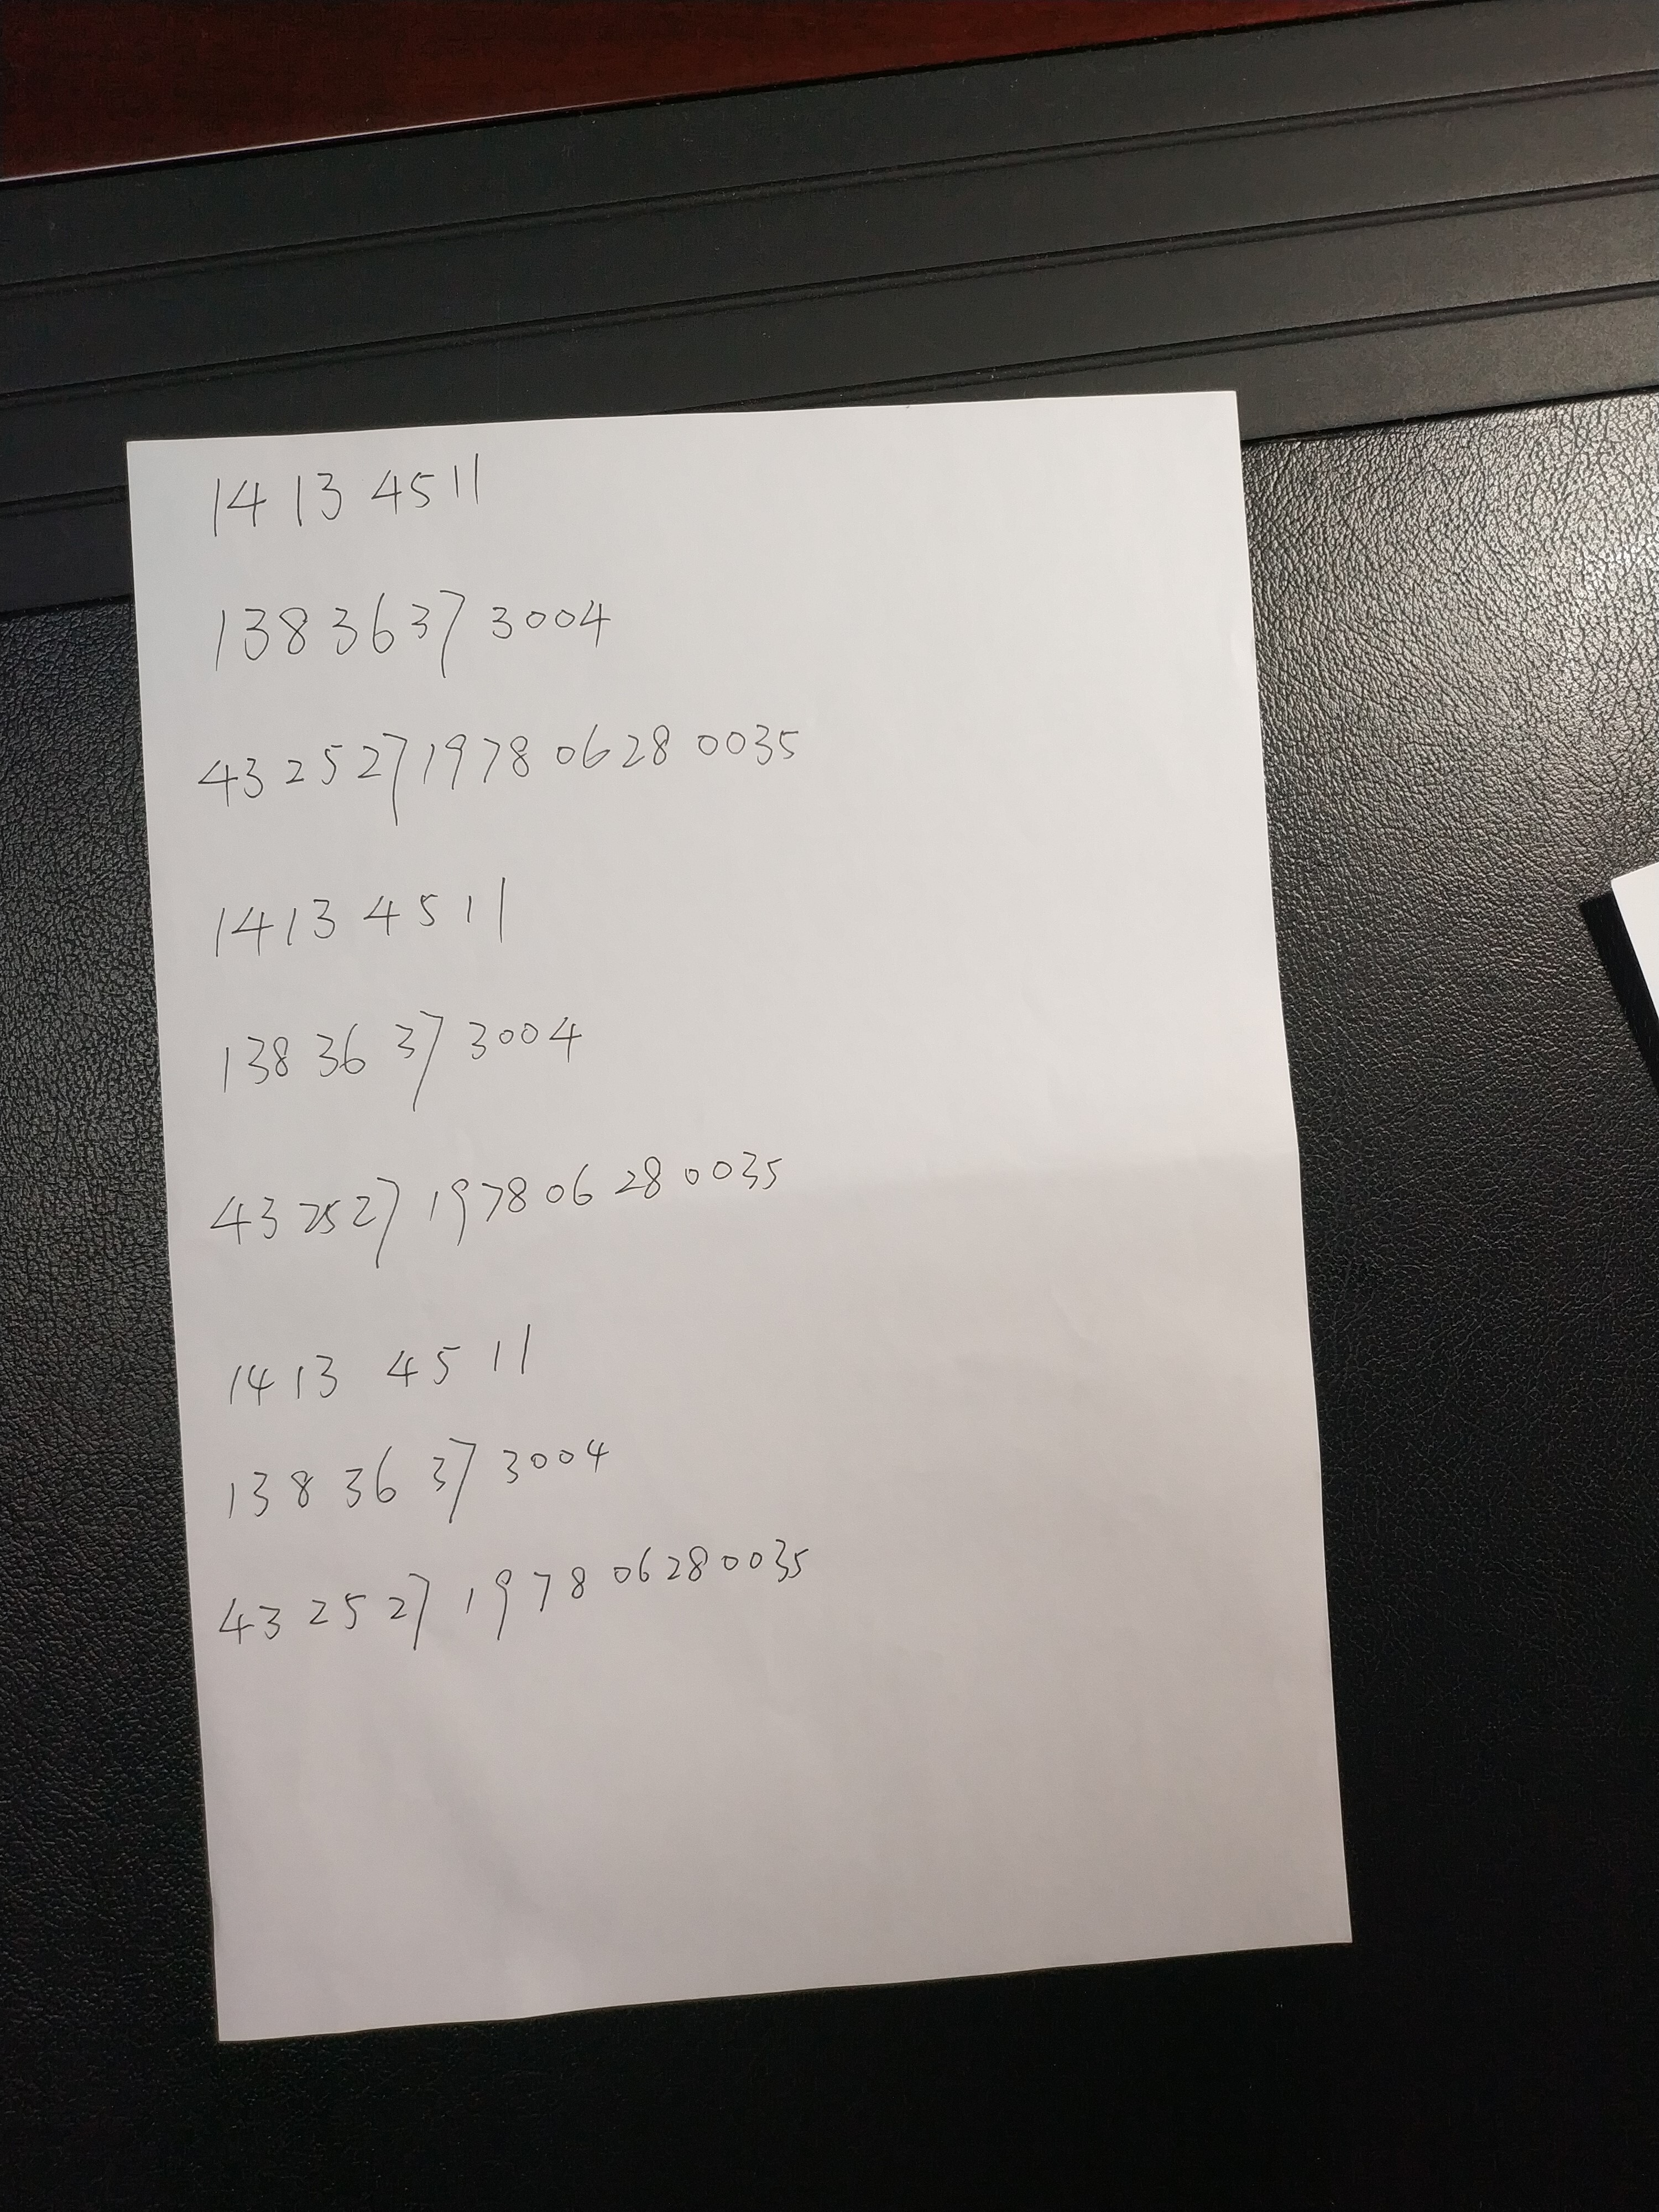 14 13 45 11
138 36 37 3004
43 25 27 1978 06 28 0035
1413 45 11
138 36 37 3004
43 25 27 1978 06 28 0035
1413 45 11
138 36 37 3004
43 25 27 1978 06280035